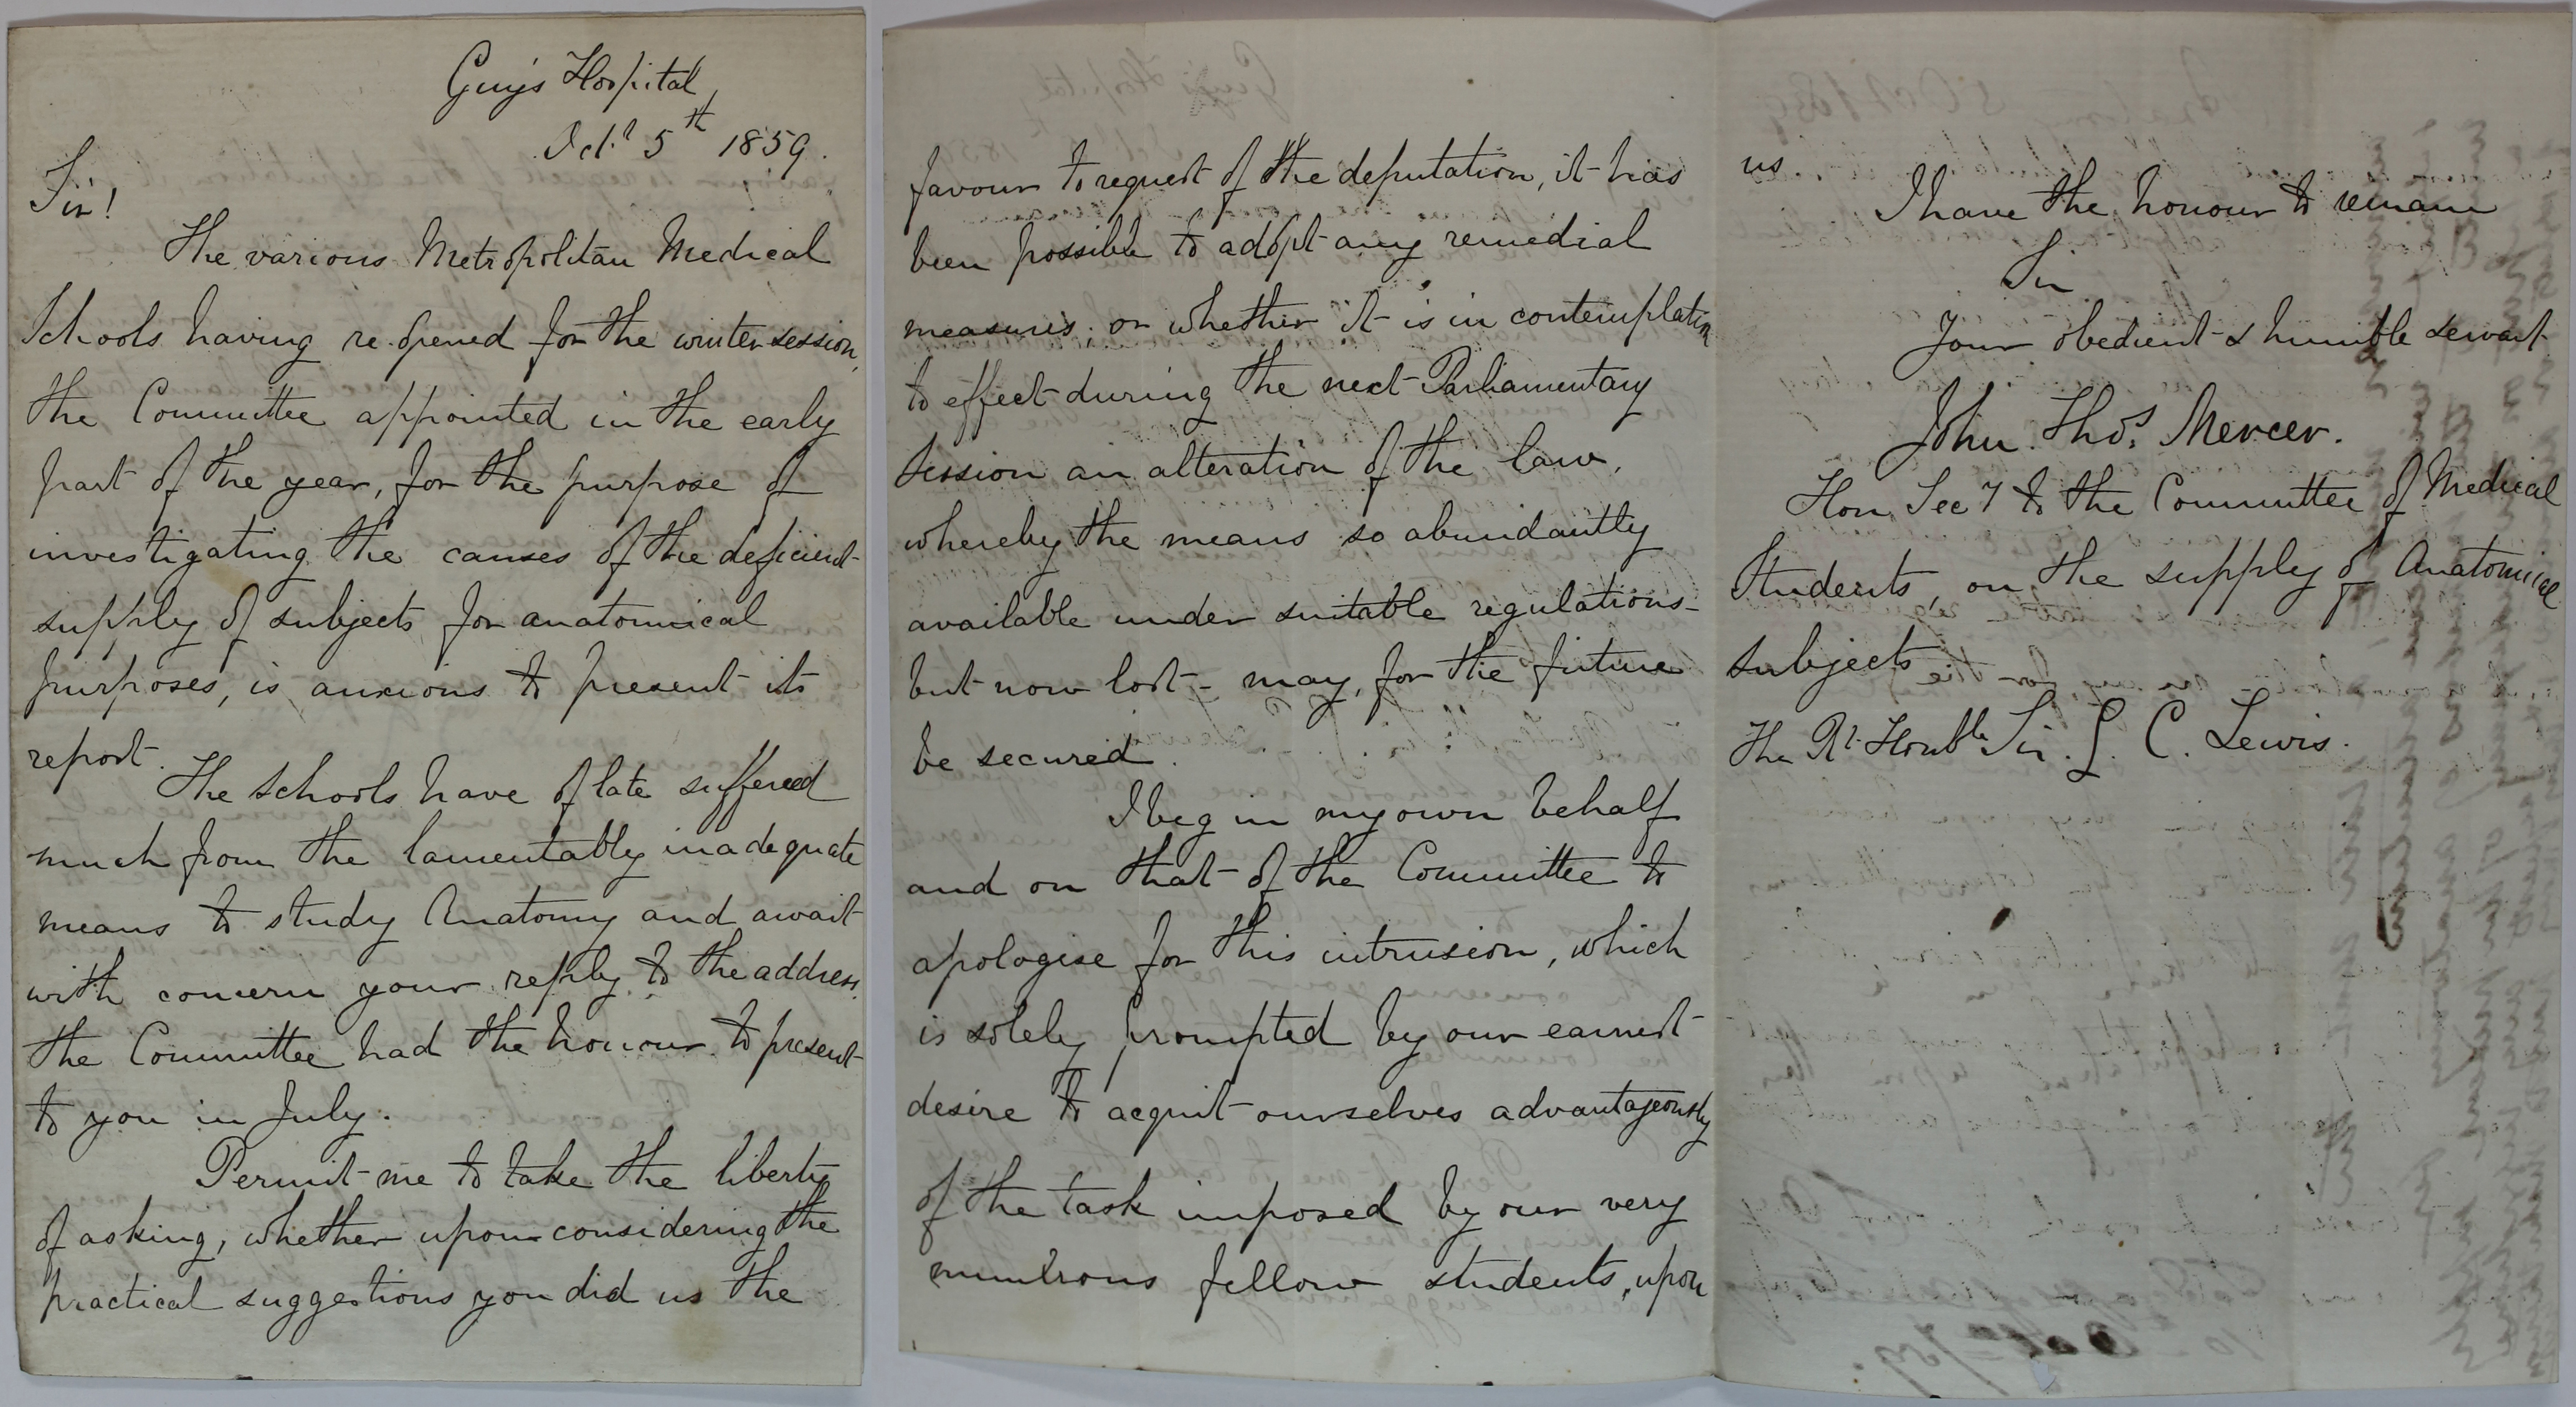 Guy's Hospital
Oct.r 5th 1859.
Sir!
The various Metropolitan Medical
Schools having re-opened for the winter session,
the Committee appointed in the early
part of the year, for the purpose of
investigating the causes of the deficient
supply of subjects for anatomical
purposes, is anxious to present its
report.
The Schools have of late suffered
much from the lamentably inadequate
means to study Anatomy and await
with concern your reply to the address,
the Committee had the honour to present
to you in July.
Permit me to take the liberty
of asking, whether upon considering the
practical suggestions you did us the
favour to request of the deputation, it has
been possible to adopt any remedial
measures; or whether it is in contemplation
to effect during the next Parliamentary
Session an alteration of the law,
whereby the means so abundantly
available under suitable regulations-
but now lost- may, for the future
be secured.
I beg in my own behalf
and on that of the Committee to
apologise for this intrusion, which
is solely prompted by our earnest
desire to acquit ourselves advantageously
of the task imposed by our very
numerous fellow students, upon
us.
I have the honour to remain
Sir
Your obedient & humble servant
John Thos. Mercer.
Hon Secy to the Committee of Medical
Students, on the supply of Anatomical
subjects
The Rt. Honble Sir. G. C. Lewis.